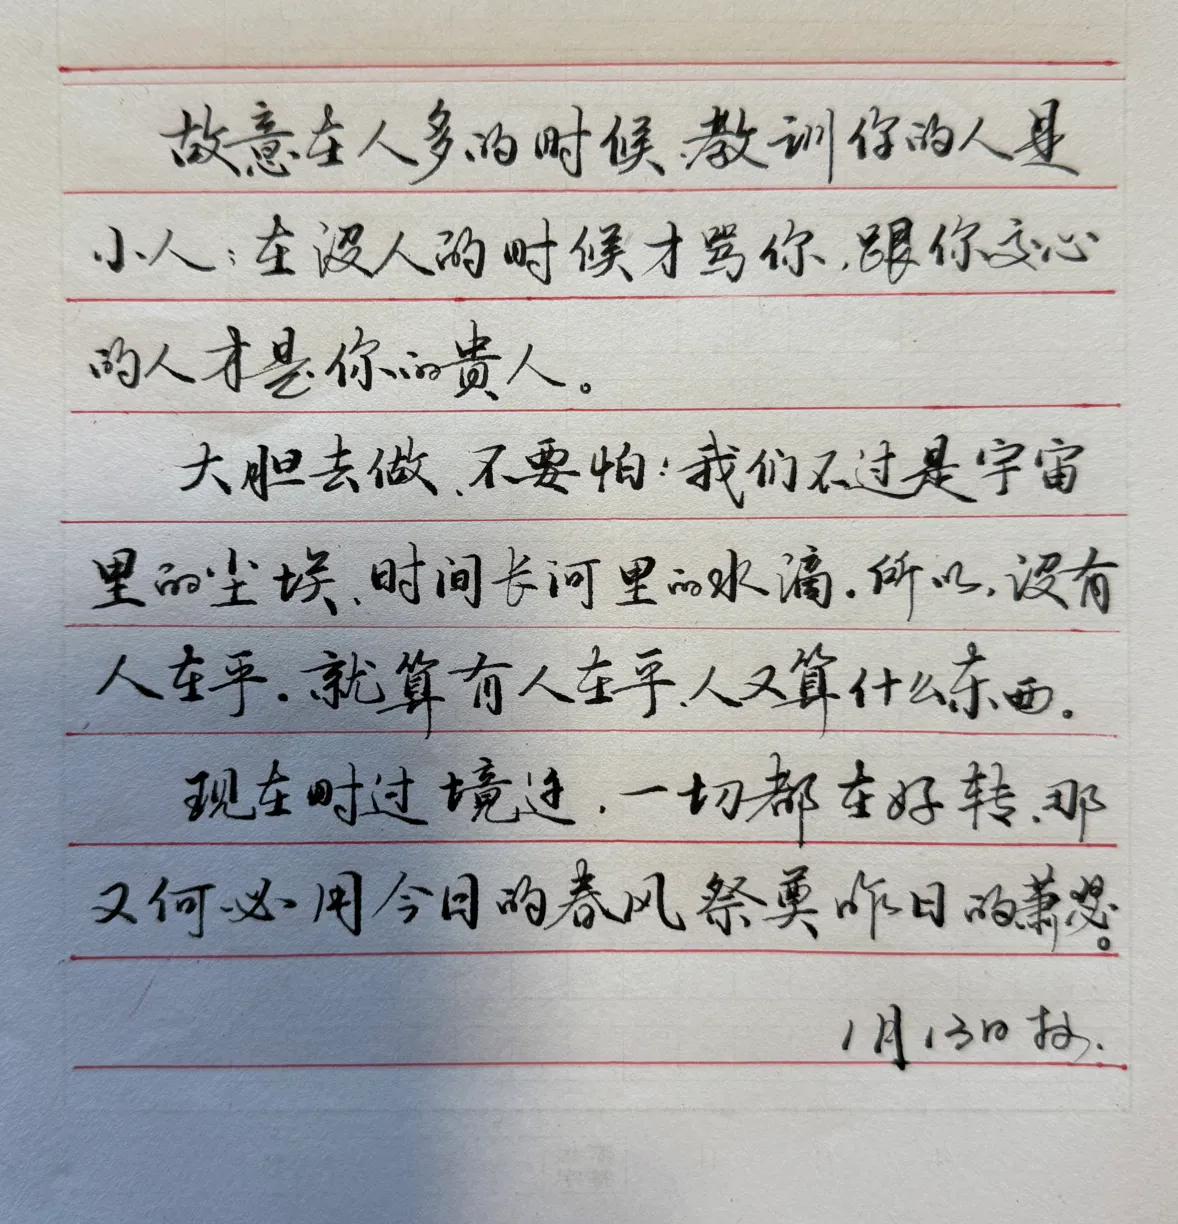 故意在人多的时候、教训你的人是
小人；在没人的时候才骂你，跟你交心
的人才是你的贵人。
大胆去做、不要怕：我们不过是宇宙
里的尘埃、时间长河里的水滴。所以，没有
人在乎。就算有人在乎、人又算什么东西。
现在时过境迁，一切都在好转、那
又何必用今日的春风祭奠昨日的萧瑟。
1月13日抄.